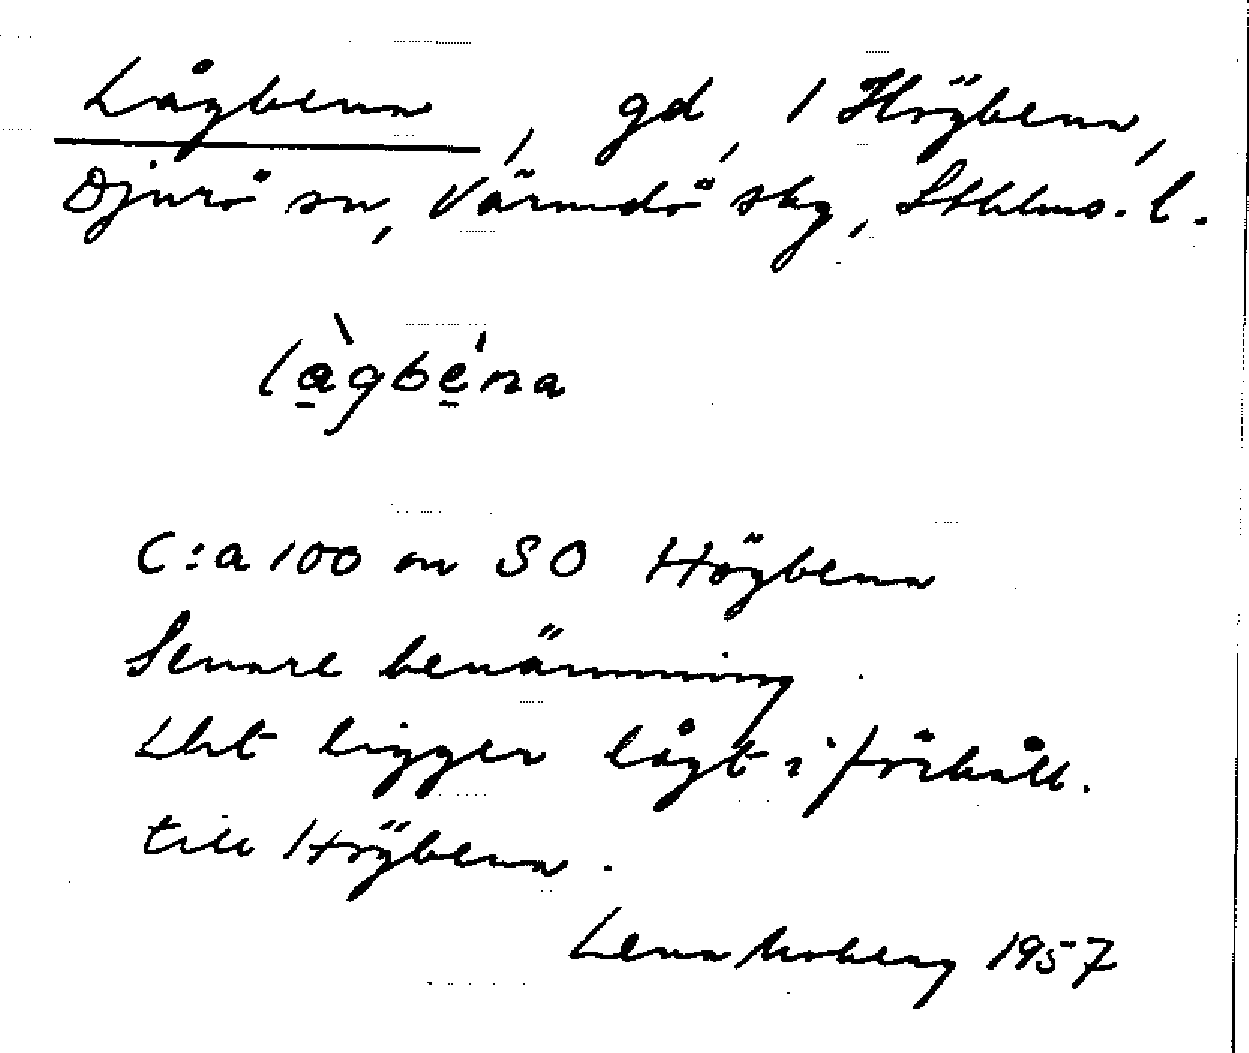 Lågbena, gd, 1 Högbena,
Djurö sn, Värmdö skg, Sthlms. l.
là̱gbé̱na
C:a 100 m SO Högbena
Senare benämning.
Det ligger lågt i förhåll.
till Högbena.
Lena Moberg 1957